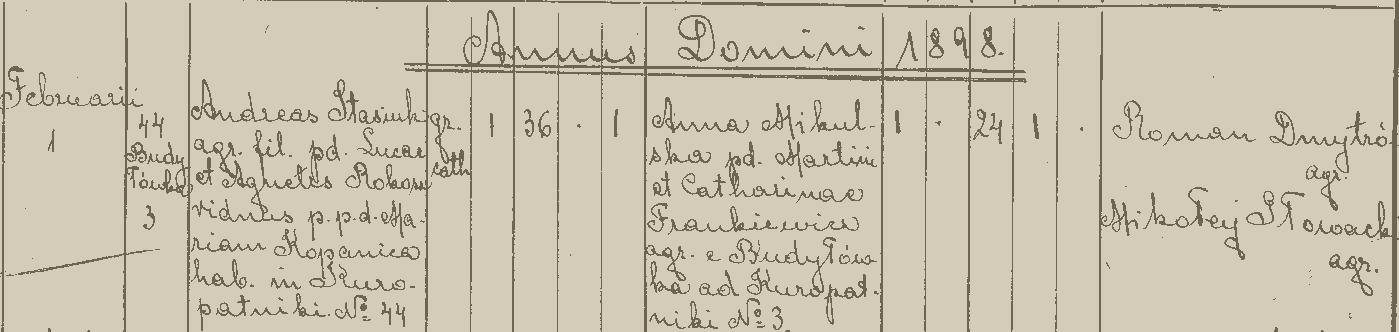 Annus Domini 1898.
Februarii
1
44
Budy
Tówka
3
Andreas Stasiuk
agr. fil. pd. Lucae
et Agnetis Rokosz
viduus p.p.d. Ma-
riam Kopanica
hab. in Kuro-
patniki. No 44
gr.
cath
1 36 . 1
Anna Mikul-
ska pd. Martini
et Catharinae
Frankiewicz
agr. e Budyłów
ka ad Kuropat-
niki No 3.
1 . 24 1 .
Roman Dmytró
agr.
Mikołej Słowack
agr.